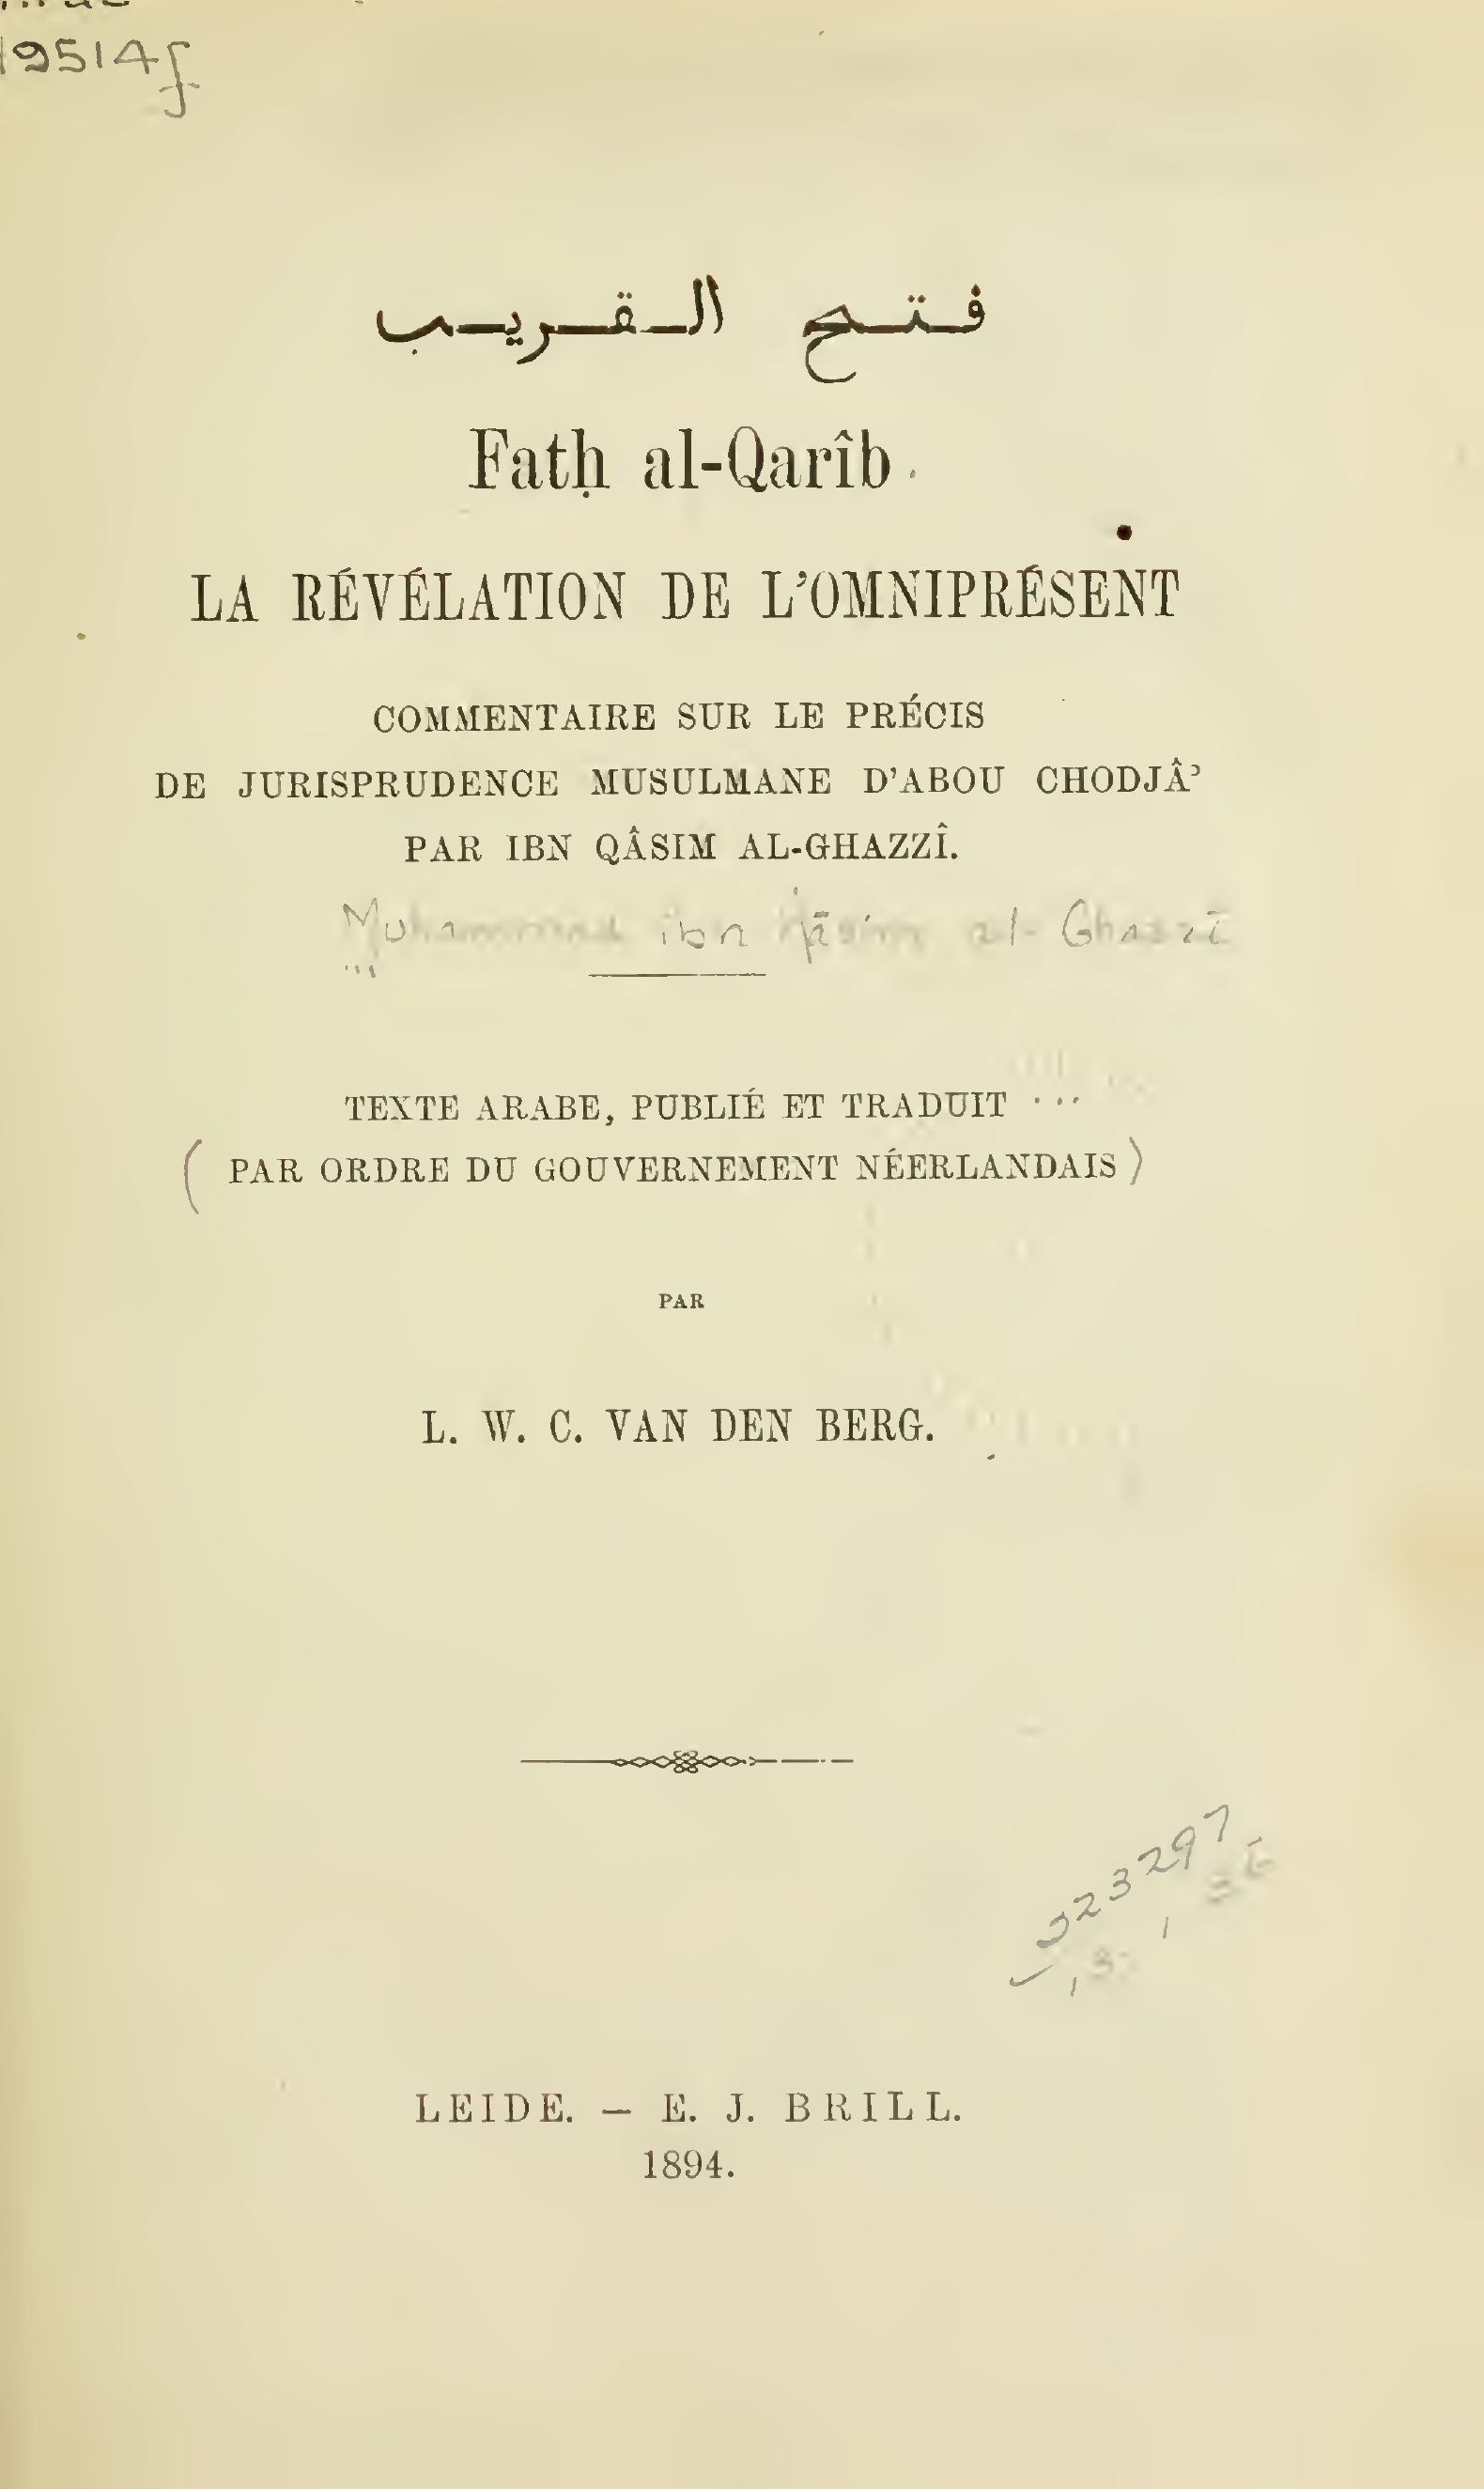 19514f
فتح القريب
Fatḥ al-Qarîb.
LA RÉVÉLATION DE L'OMNIPRÉSENT
COMMENTAIRE SUR LE PRÉCIS
DE JURISPRUDENCE MUSULMANE D'ABOU CHODJÂʾ
PAR IBN QÂSIM AL-GHAZZÎ.
Muhammad ibn Ḳāsim al-Ghazzī
TEXTE ARABE, PUBLIÉ ET TRADUIT ...
(PAR ORDRE DU GOUVERNEMENT NÉERLANDAIS)
PAR
L. W. C. VAN DEN BERG.
323297
LEIDE. — E. J. BRILL.
1894.